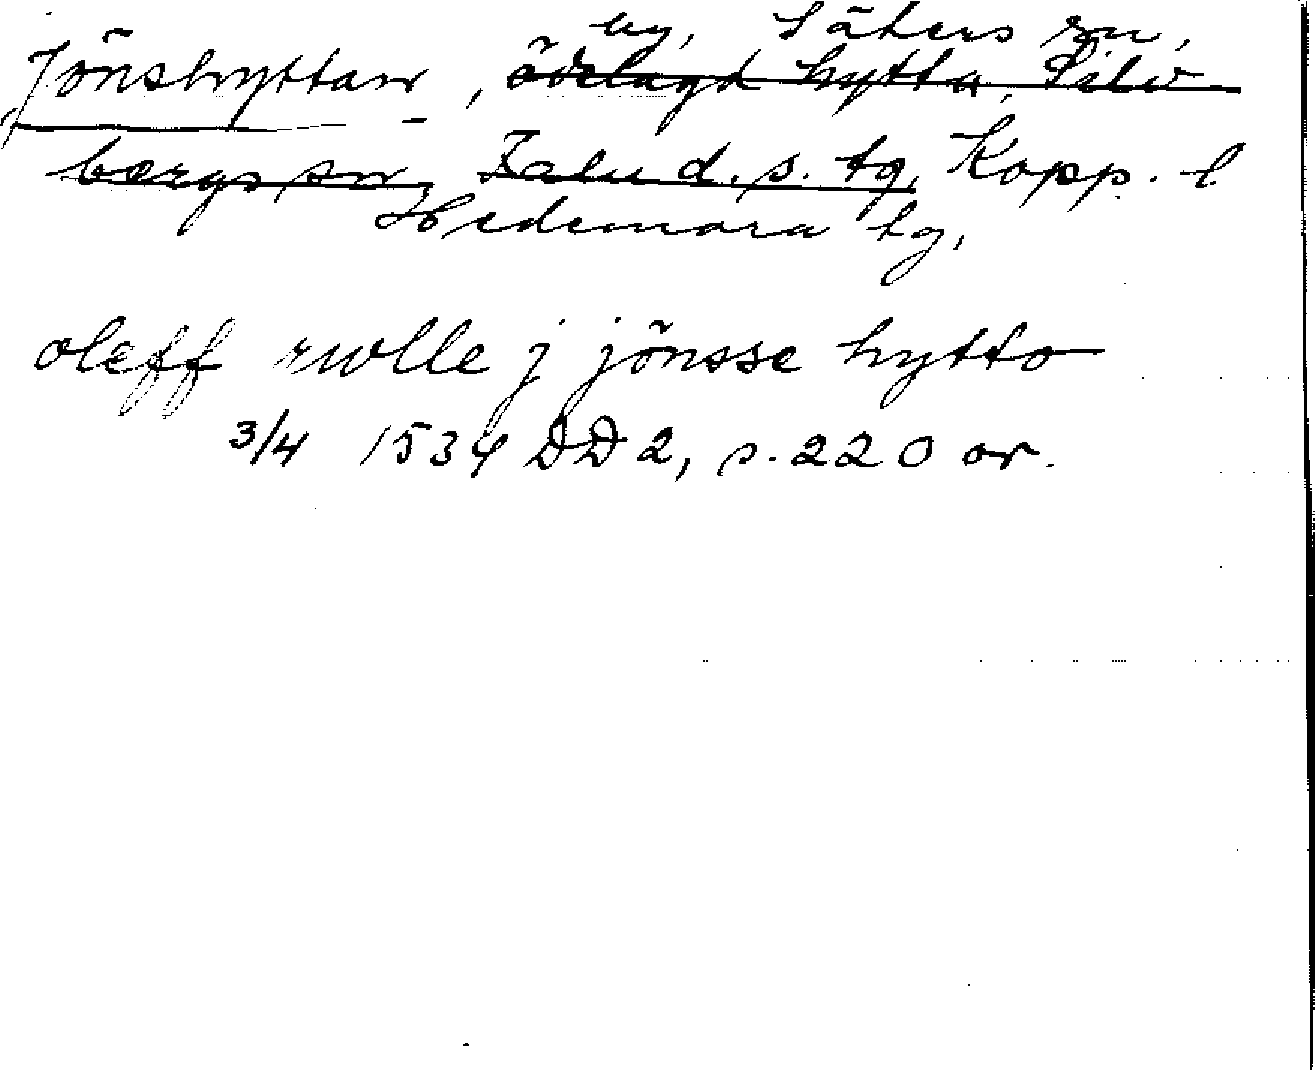 by, Säters sn,
Jönshyttan, ödelagd hytta, Silv-
bergs sn, Falu d. s. tg, Kopp. l
Hedemora tg,
oleff rwlle j jönsse hytto
3/4 1534 DD 2, s. 220 or.